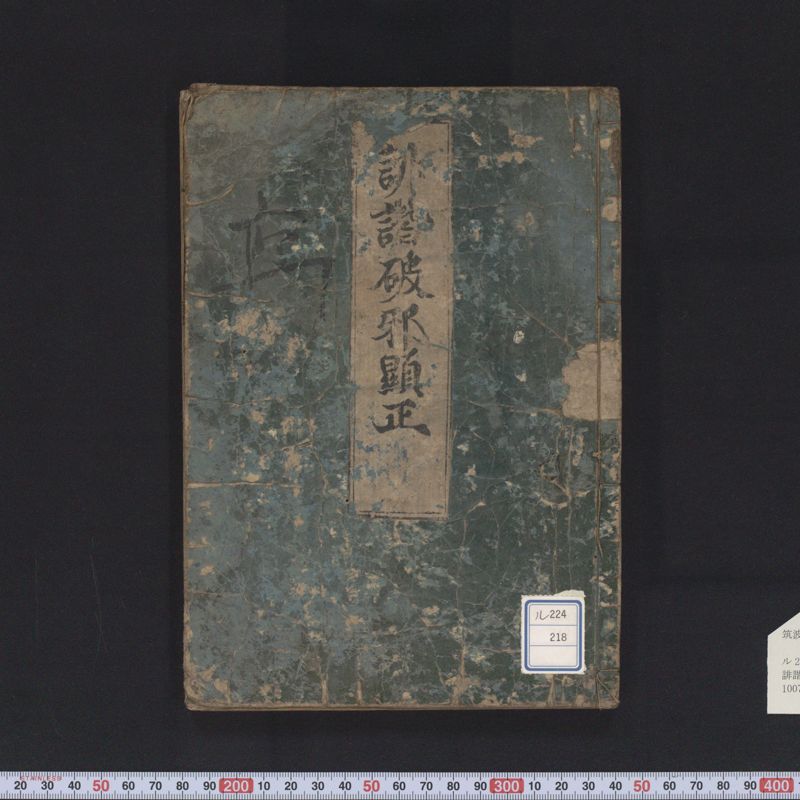 誹諧破邪顕正
ル224
218
筑波
ル2
誹諧
1007
STAINLESS
20 30 40 50 60 70 80 90 200 10 20 30 40 50 60 70 80 90 300 10 20 30 40 50 60 70 80 90 400